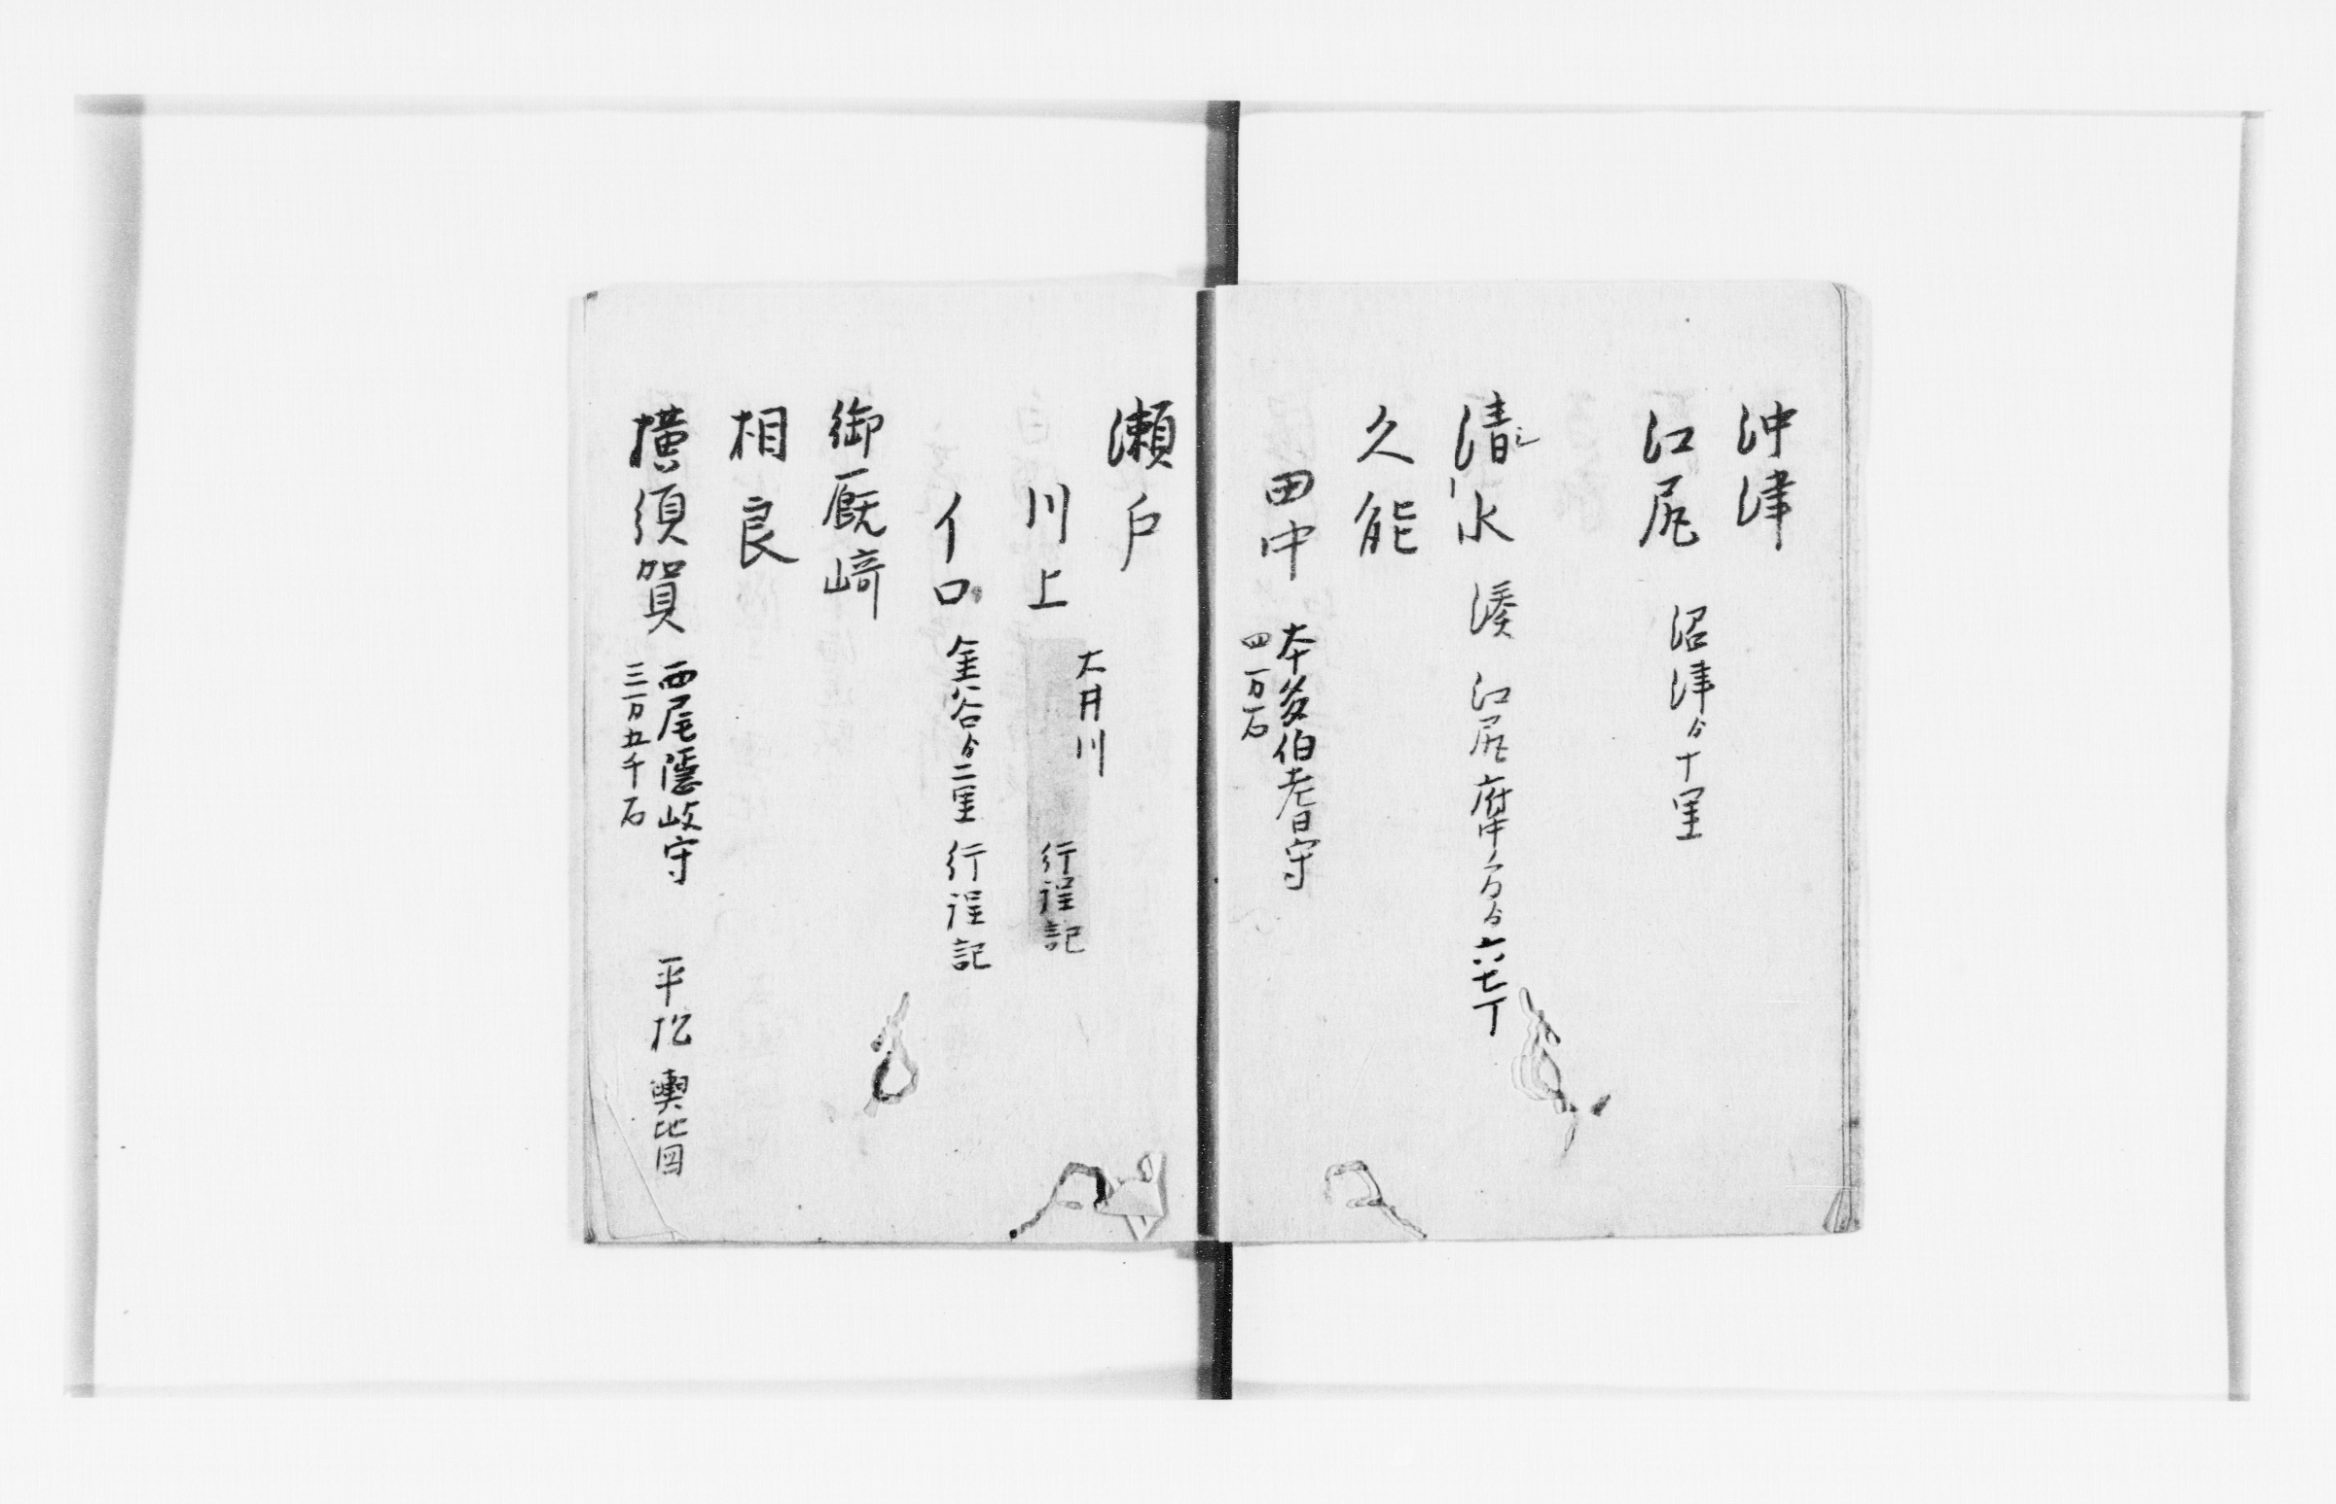 沖津
江尻 沼津ゟ十里
清水 湊 江尻 ゟ六七丁
久能
田中 本多伯耆守
四万石
瀬戸
大井川
川上 行程記
イロ 金谷ゟ二里 行程記
御厩﨑
相良
横須賀 西尾隠岐守 平松 輿地図
三万五千石